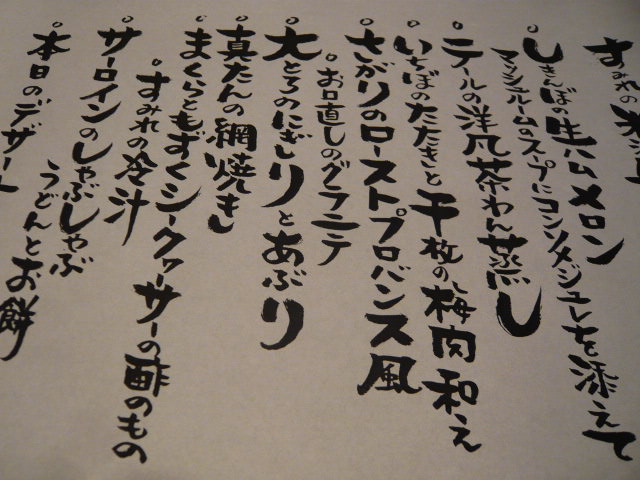 すみれの
しきんぼの生ハムメロン
マッシュルームのスープにコンソメジュレを添えて
テールの洋風茶わん蒸し
いちぼのたたきと干枚の梅肉和え
さがりのローストプロバンス風
お口直しのグラニテ
大とろのにぎりとあぶり
真たんの網焼き
まくらともずくシークァーサーの酢のもの
すみれの冷汁
サーロインのしゃぶしゃぶ
うどんとお餅
本日のデザート